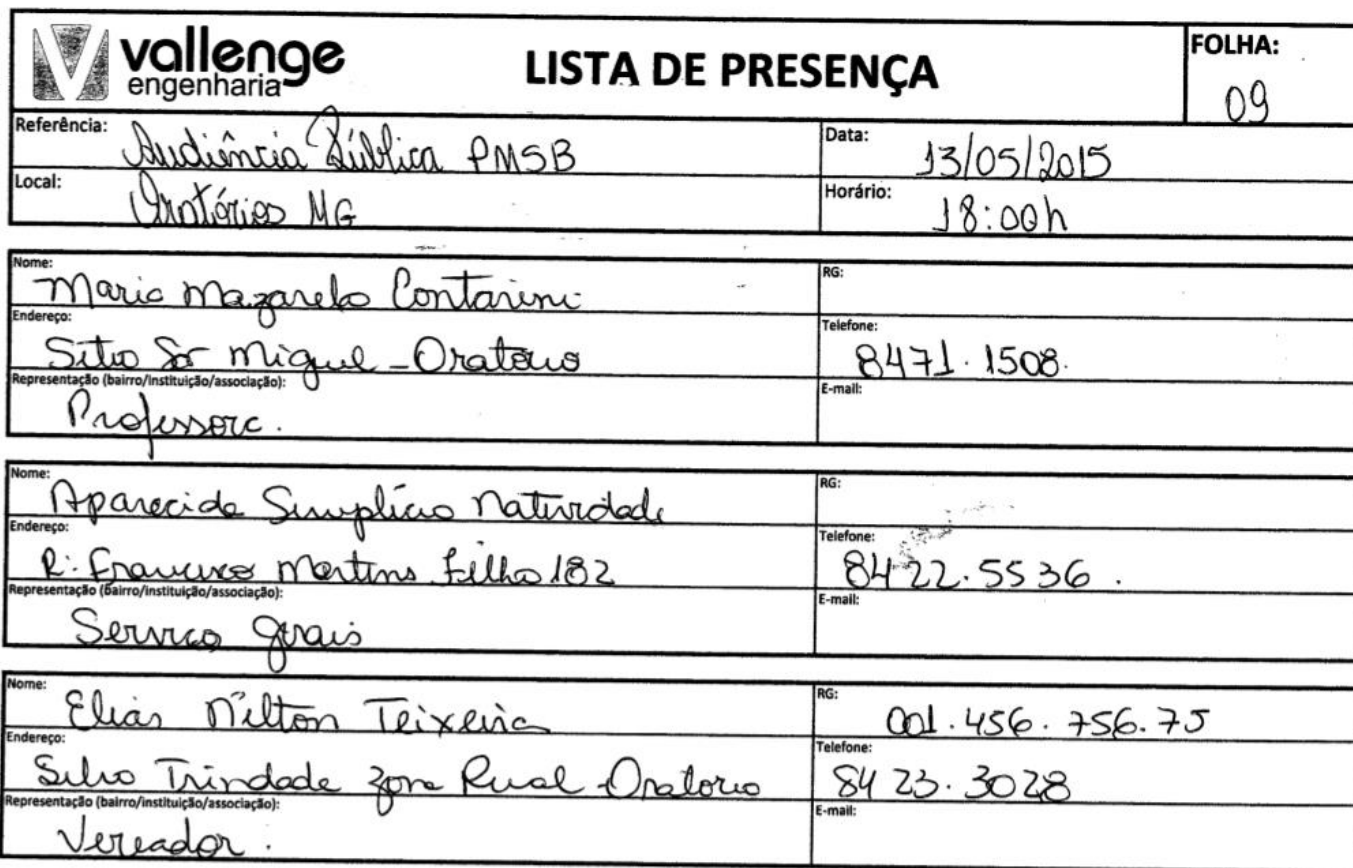 vallenge
engenharia
LISTA DE PRESENÇA
FOLHA:
09
Referência: Audiência Pública PMSB
Data: 13/05/2015
Local: Oratórios MG
Horário: 18:00h
Nome: Maria Mazarelo Contarini
RG:
Endereço: Sitio São Miguel - Oratorio
Telefone: 8471.1508.
Representação (bairro/instituição/associação): Professora.
E-mail:
Nome: Aparecida Simplício Natividade
RG:
Endereço: R: Francisco Martins Filho 182
Telefone: 8422.5536.
Representação (bairro/instituição/associação): Serviços gerais
E-mail:
Nome: Elias Nilton Teixeira
RG: 001.456.756.75
Endereço: Trindade zona Rual - Oratorio
Telefone: 8423.3028
Representação (bairro/instituição/associação): Vereador.
E-mail: